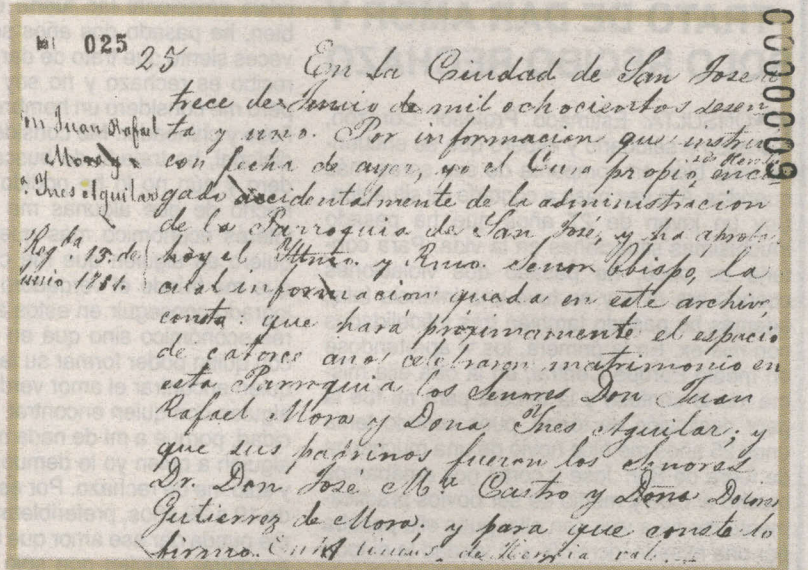 025
25
0000009
En la Ciudad de San José a
trece de Junio de mil ochocientos sesen
ta y uno. Por informacion que instrui
con fecha de ayer, yo el Cura propio, encar
gado accidentalmente de la administracion
de la Parroquia de San José, y ha aproba
hoy el Ylmo. y Rmo. Señor Obispo, la
cual informacion queda en este archivo,
consta: que hará próximamente el espacio
de catorce años celebraron matrimonio en
esta Parroquia los Senores Don Juan
Rafael Mora y Dona Ynes Aguilar; y
que sus padrinos fueron los Senores
Dr. Don José Ma. Castro y Dona Dolores
Gutierrez de Mora; y para que conste lo
firmo.
on Juan Rafael
Mora y
a. Ynes Aguilar
Regda 13. de
Junio